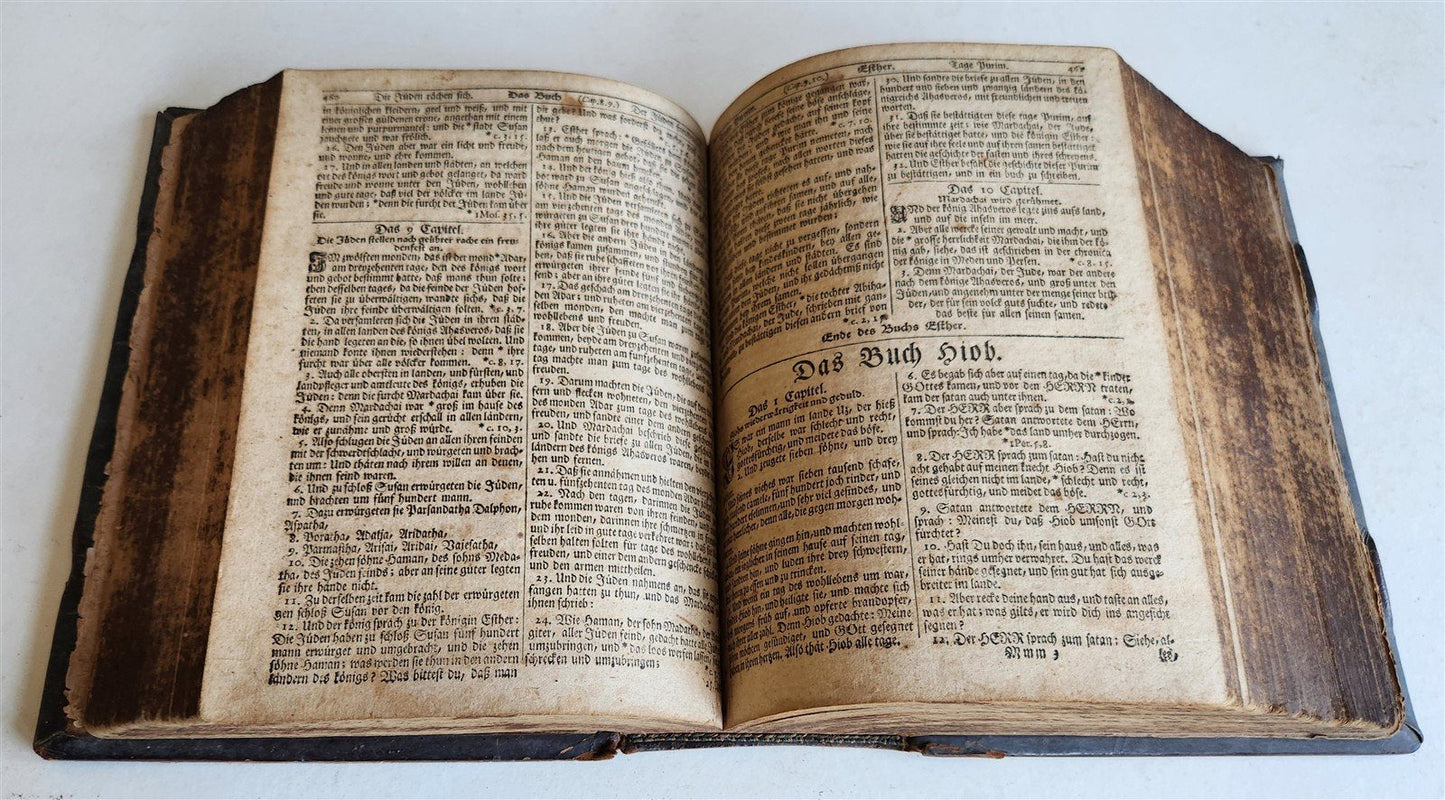 460 Die Jüden rächen sich. Das Buch (Cap. 8. 9.) Der Jüden
in königlichen kleidern, geel und weiß, und mit
einer grossen güldenen crone, angethan mit einem
leinen und purpurmantel: und die * stadt Susan
jauchzete und war frölich. * c. 3, 15.
16. Den Jüden aber war ein licht und freude,
und wonne, und ehre kommen.
17. Und in allen landen und städten, an welchen
ort des königs wort und gebot gelanget, da ward
freude und wonne unter den Jüden, wohlleben
und gute tage, daß viel der völcker im lande Jü-
den wurden; * denn die furcht der Jüden kam über
sie. * 1Mos. 35, 5.
Das 9 Capitel.
Die Jüden stellen nach geübter rache ein freu-
denfest an.
IM zwölften monden, das ist der mond * Adar
am dreyzehenten tage, den des königs wort
und gebot bestimmt hatte, daß mans thun solte;
eben desselben tages, da die feinde der Jüden hof-
feten sie zu überwältigen, wandte sichs, daß die
Jüden ihre feinde überwältigen solten. * c. 3, 7.
2. Da versamleten sich die Jüden in ihren städ-
ten, in allen landen des königs Ahasveros, daß sie
die hand legeten an die, so ihnen übel wolten. Und
niemand konte ihnen wiederstehen: denn * ihre
furcht war über alle völcker kommen. * c. 8, 17.
3. Auch alle obersten in landen, und fürsten, und
landpfleger und amtleute des königs, erhuben die
Jüden: denn die furcht Mardachai kam über sie.
4. Denn Mardachai war * groß im hause des
königs, und sein gerücht erschall in allen ländern,
wie er zunähme und groß würde. * c. 10, 3.
5. Also schlugen die Jüden an allen ihren feinden
mit der schwerdtschlacht, und würgeten und brach-
ten um: Und thäten nach ihrem willen an denen,
die ihnen feind waren.
6. Und zu schloß Susan erwürgeten die Jüden,
und brachten um fünf hundert mann.
7. Dazu erwürgeten sie Parsandatha Dalphon,
Aspatha,
8. Poratha, Adalja, Aridatha,
9. Parmastha, Arisai, Aridai, Vajesatha,
10. Die zehen söhne Haman, des sohns Meda-
tha, des Jüden feinds; aber an seine güter legten
sie ihre hände nicht.
11. Zu derselben zeit kam die zahl der erwürgeten
gen schloß Susan vor den könig.
12. Und der könig sprach zu der königin Esther:
Die Jüden haben zu schloß Susan fünf hundert
mann erwürget und umgebracht, und die zehen
söhne Haman; was werden sie thun in den andern
ländern des königs? Was bittest du, daß man
dir gebe? Und was forderst du
thue?
13. Esther sprach: * Gefällets
laß er auch morgen die Jüden
nach dem heutigen gebot,
Haman an den baum
14. Und der könig hieß
söhne Haman wurden gehenckt.
15. Und die Jüden versamleten sich
am vierzehenten tage des monden
würgeten zu Susan drey hundert
ihre güter legten sie ihre hände
16. Aber die andern Jüden in
königs kamen zusammen, und stunden
ben, daß sie ruhe schaffeten vor ihren
erwürgeten ihrer feinde fünf und
send; aber an ihre güter legten sie
17. Das geschach am dreyzehenten tage
den Adar; und ruheten am vierzehenten
selben monden, den machte man zum
wohllebens und freuden.
18. Aber die Jüden zu Susan waren zusammen
kommen, beyde am dreyzehenten und
tage, und ruheten am funfzehenten tage,
tag machte man zum tage des wohllebens
freuden.
19. Darum machten die Jüden, die auf den
fern und flecken wohneten, den vierzehenten
des monden Adar zum tage des wohllebens
freuden, und sandte einer dem andern geschencke.
20. Und Mardachai beschrieb diese
und sandte die briefe zu allen Jüden,
ländern des königs Ahasveros waren, beyde
hen und fernen.
21. Daß sie annähmen und hielten den vierzehen-
ten u. funfzehenten tag des monden Adar
22. Nach den tagen, darinnen die
ruhe kommen waren von ihren feinden,
dem monden, darinnen ihre schmertzen in
und ihr leid in gute tage verkehret war; daß
selben halten solten für tage des wohllebens
freuden, und einer dem andern geschencke
und den armen mittheilen.
23. Und die Jüden nahmens an, das sie
fangen hatten zu thun, und das Mardachai
ihnen schrieb:
24. Wie Haman, der sohn Madatha, der
giter, aller Jüden feind, gedacht hatte alle
umzubringen, und * das loos werfen lassen,
schrecken und umzubringen;
(Cap. 9. 10.) Esther. Tage Purim. 461
könige ergangen war,
böse anschläge,
kopf
und seine
Purim nenneten, nach
nach allen worten dieses
gesehen hatten, und was
richteten es auf, und nah-
samen, und auf alle,
daß sie nicht übergehen
zween tage jährlich, wie
bestimmet wurden;
nicht zu vergessen, sondern
kindeskindern, bey allen ge-
ländern und städten. Es sind
nicht sollen übergangen
Jüden, und ihr gedächtniß nicht
ihrem samen.
Esther, * die tochter Abiha-
der Jude, schrieben mit gan-
zu bestättigen diesen andern brief von
* c. 2, 15.
30. Und sandte die briefe zu allen Jüden, in den
hundert und sieben und zwantzig ländern des kö-
nigreichs Ahasveros, mit freundlichen und treuen
worten.
31. Daß sie bestättigten diese tage Purim, auf
ihre bestimmte zeit; wie Mardachai, der Jude,
über sie bestättiget hatte, und die königin Esther;
wie sie auf ihre seele und auf ihren samen bestättiget
hatten die geschichte der fasten und ihres schreyens.
32. Und Esther befahl die geschichte dieser Purim
zu bestättigen, und in ein buch zu schreiben.
Das 10 Capitel.
Mardachai wird gerühmet.
UNd der könig Ahasveros leget zins aufs land,
und auf die inseln im meer.
2. Aber alle wercke seiner gewalt und macht, und
die * grosse herrlichkeit Mardachai, die ihn der kö-
nig gab, siehe, das ist geschrieben in der chronica
der könige in Meden und Persen. * c. 8, 15.
3. Denn Mardachai, der Jude, war der andere
nach dem könige Ahasveros, und groß unter den
Jüden, und angenehm unter der menge seiner brü-
der, der für sein volck gutes suchte, und redete
das beste für allen seinen samen.
Ende des Buchs Esther.
Das Buch Hiob.
Das 1 Capitel.
Hiobs wiederwärtigkeit und geduld.
ES war ein mann im lande Uz, der hieß
Hiob, derselbe war schlecht und recht,
gottsfürchtig, und meidete das böse.
2. Und zeugete sieben söhne, und drey
seines viehes war sieben tausend schafe,
tausend camele, fünf hundert joch rinder, und
hundert eselinnen, und sehr viel gesindes, und
herrlicher, denn alle, die gegen morgen woh-
seine söhne gingen hin, und machten wohl-
ein jeglicher in seinem hause auf seinen tag,
sandten hin, und luden ihre drey schwestern,
zu essen und zu trincken.
wenn ein tag des wohllebens um war,
Hiob hin, und heiligte sie, und machte sich
morgens früh auf, und opferte brandopfer,
ihrer aller zahl. Denn Hiob gedachte: Meine
möchten gesündiget, und GOtt gesegnet
haben in ihren hertzen. Also that Hiob alle tage.
6. Es begab sich aber auf einen tag, da die * kinder
GOttes kamen, und vor den HERRN traten,
kam der satan auch unter ihnen. * c. 2, 1.
7. Der HERR aber sprach zu dem satan: Wo
kommst du her? Satan antwortete dem HErrn,
und sprach: Ich habe * das land umher durchzogen.
* 1Pet. 5, 8.
8. Der HERR sprach zum satan: Hast du nicht
acht gehabt auf meinen knecht Hiob? Denn es ist
seines gleichen nicht im lande, * schlecht und recht,
gottesfürchtig, und meidet das böse. * c. 2, 3.
9. Satan antwortete dem HERRN, und
sprach: Meinest du, daß Hiob umsonst GOtt
fürchtet?
10. Hast Du doch ihn, sein haus, und alles, was
er hat, rings umher verwahret. Du hast das werck
seiner hände gesegnet, und sein gut hat sich ausge-
breitet im lande.
11. Aber recke deine hand aus, und taste an alles,
was er hat; was gilts, er wird dich ins angesicht
segnen?
12. Der HERR sprach zum satan: Siehe, al-
Mmm 3 les,